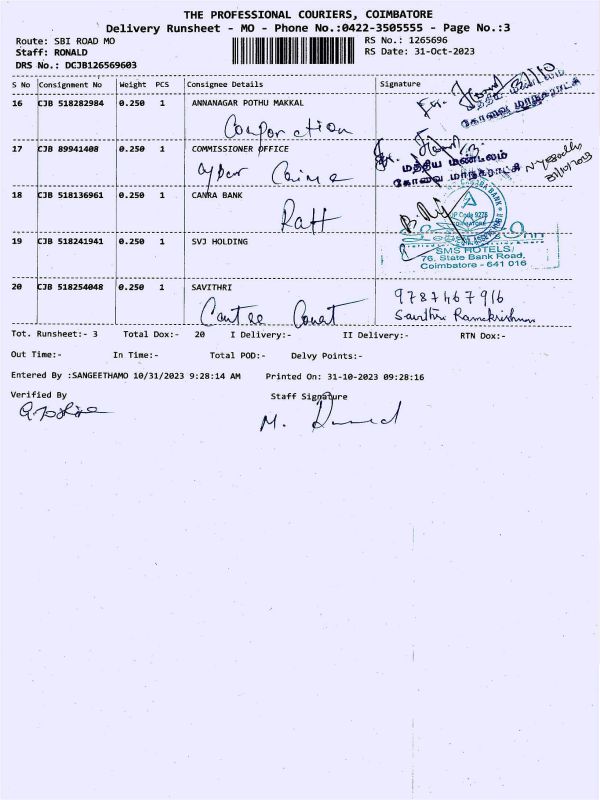 THE PROFESSIONAL COURIERS, COIMBATORE
Delivery Runsheet - MO - Phone No.:0422-3505555 - Page No.:3
Route: SBI ROAD MO RS No.: 1265696
Staff: RONALD RS Date: 31-Oct-2023
DRS No.: DCJB126569603
S No Consignment No Weight PCS Consignee Details Signature
16 CJB 518282984 0.250 1 ANNANAGAR POTHU MAKKAL
Corporation
கோவை மாநகராட்சி
17 CJB 89941408 0.250 1 COMMISSIONER OFFICE
Cyber Crime
மத்திய மண்டலம்
கோவை மாநகராட்சி
31/10/2023
18 CJB 518136961 0.250 1 CANRA BANK
CANARA BANK
19 CJB 518241941 0.250 1 SVJ HOLDING
SMS HOTELS
76, State Bank Road,
Coimbatore - 641 016
20 CJB 518254048 0.250 1 SAVITHRI
Court
9787467916
Savithri Ramakrishnan
Tot. Runsheet:- 3 Total Dox:- 20 I Delivery:- II Delivery:- RTN Dox:-
Out Time:- In Time:- Total POD:- Delvy Points:-
Entered By :SANGEETHAMO 10/31/2023 9:28:14 AM Printed On: 31-10-2023 09:28:16
Verified By Staff Signature